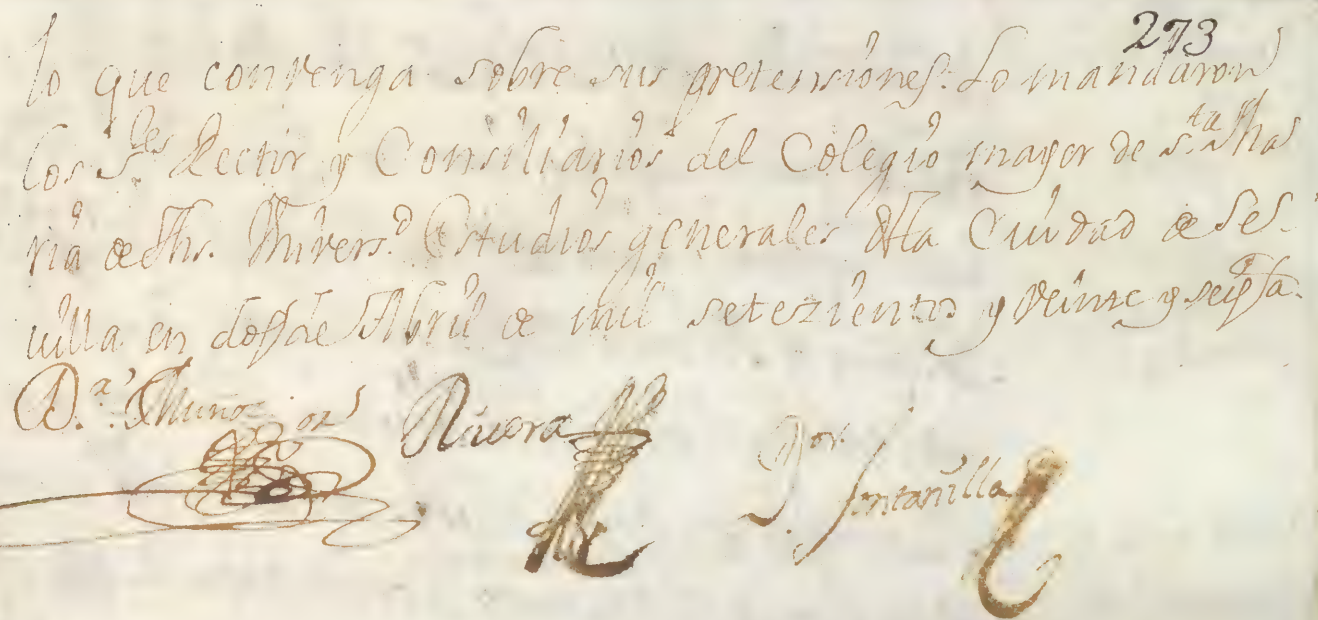 273
lo que convenga sobre sus pretensiones. Lo mandaron
los S.res Rector y Consiliarios del Colegio mayor de s.ta Ma
ria de Jhs. Vnivers.d Estudios generales de la Ciudad de Se
uilla en dos de Abril de mil setezientos y Veinte y seis
D.r Muñoz Riuera D.or fontanilla